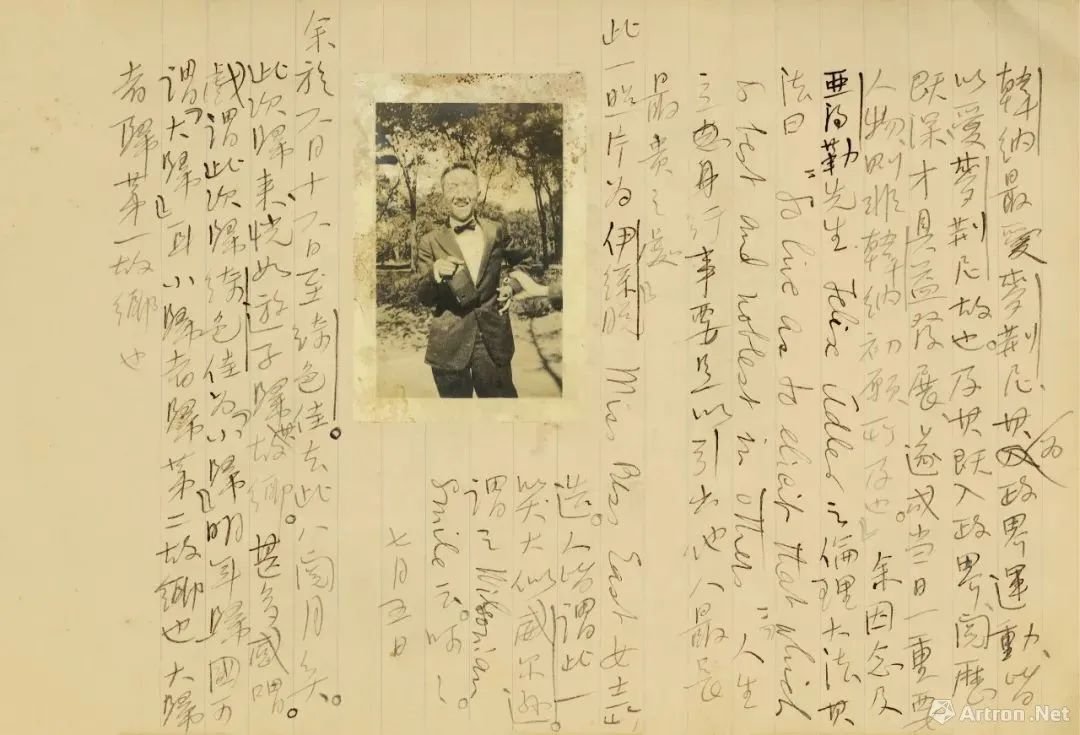 韓納最愛麥荆尼、其为政界運動、皆
以愛麥荆尼故也。及其既入政界、閱歷
既深才具益發展、遂成當日一重要
人物、則非韓納初願所及也」余因念及
亞得勒先生 Felix Adler 之倫理大法其
法曰 "So live as to elicit that which
is best and noblest in others" 人生
立身行事要足以引出他人最長
最貴之處耳
此一照片为伊絲脫 Miss Bess East 女士所
造。人皆謂此一
笑大似威尔遜。
謂之 Wilsonian
Smile 云。
七月五日
余於六月十六日至綺色佳去此八閱月矣。
此次歸來恍如遊子歸故鄉。甚多感喟。
戲謂此次歸綺色佳为「小歸」明年歸國乃
謂「大歸」耳小歸者歸第二故鄉也大歸
者歸第一故鄉也
Artron.Net